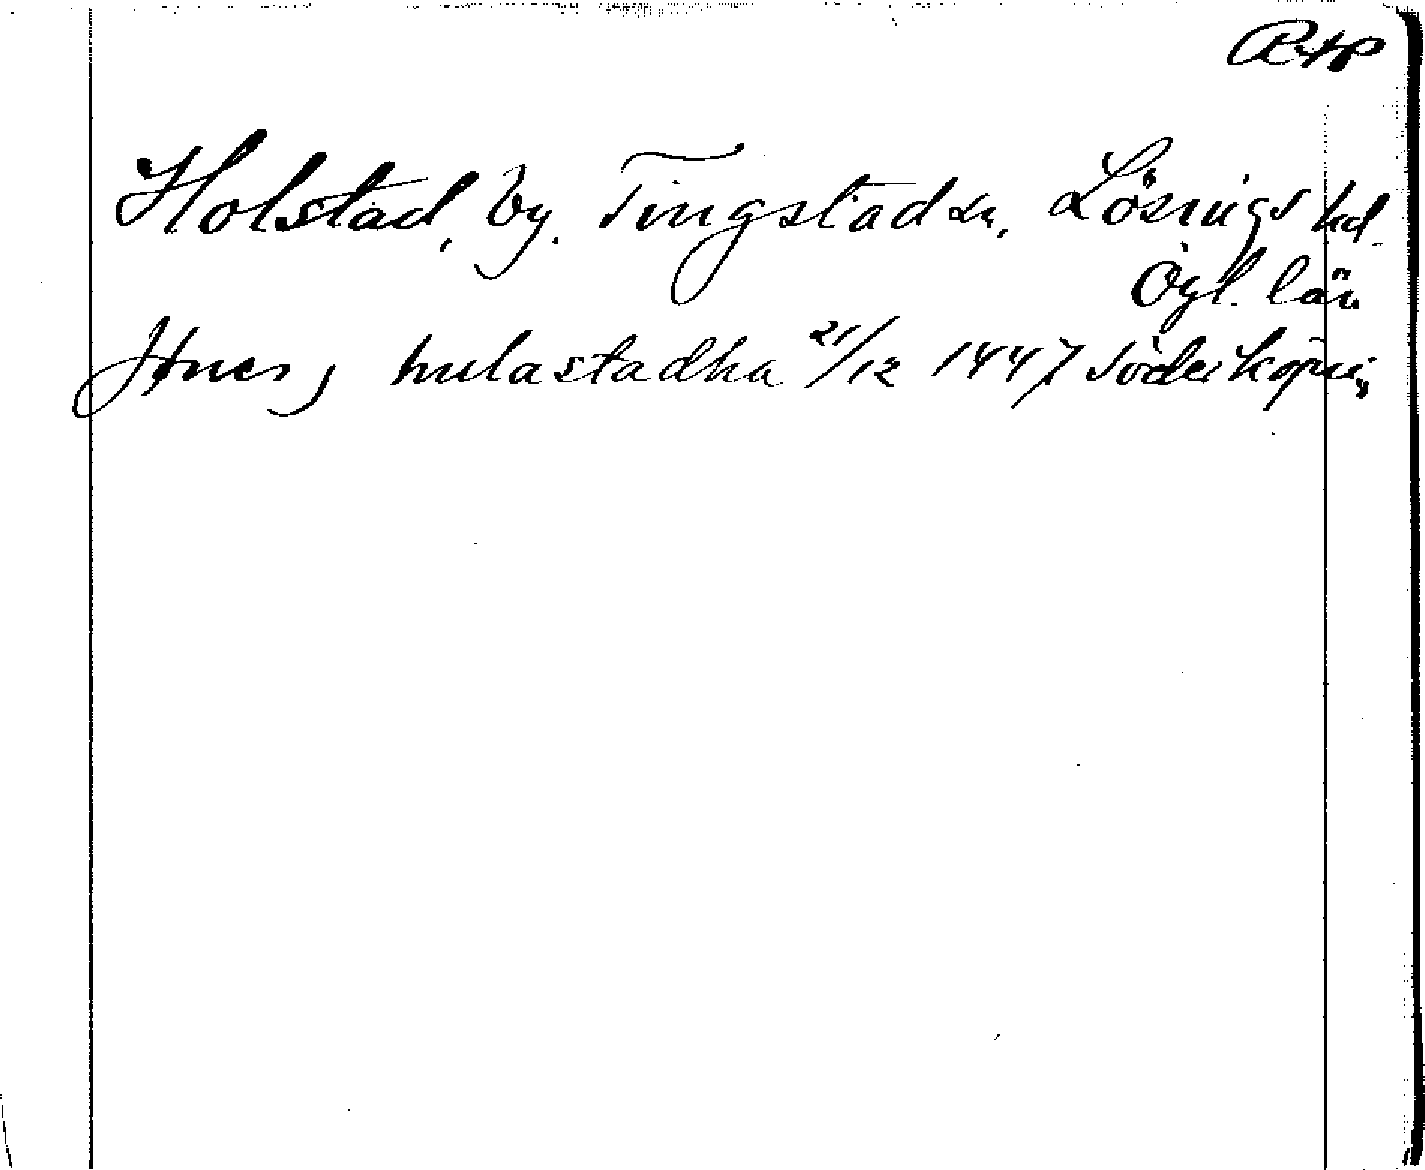 RAP
Holstad, by. Tingstad sn, Lösings hd.
Ögl. län
hulastadha 21/12 1447 Söderköping